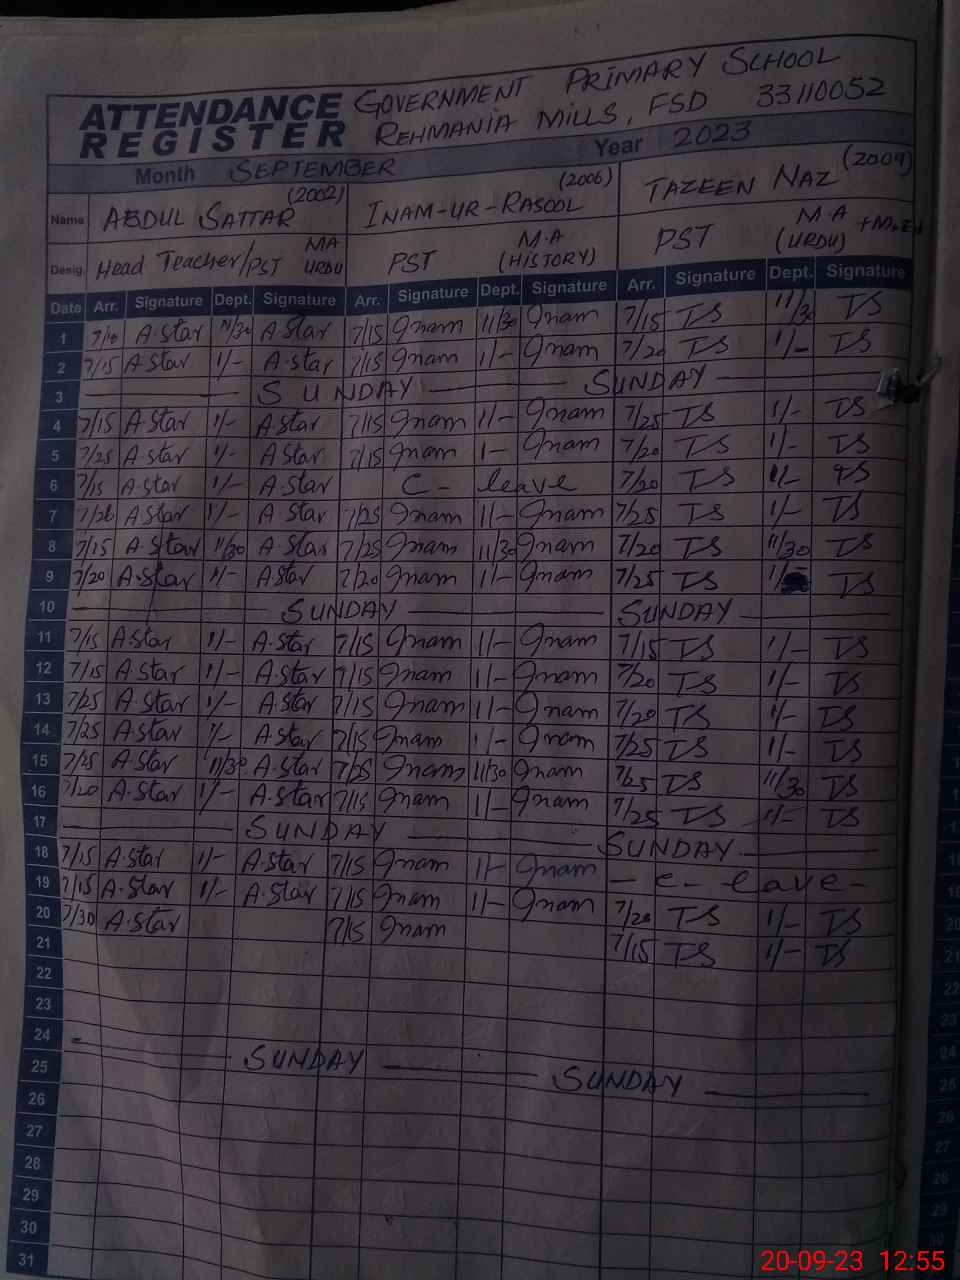 ATTENDANCE REGISTER GOVERNMENT PRIMARY SCHOOL
REHMANIA MILLS, FSD 33110052
Month SEPTEMBER Year 2023
Name ABDUL SATTAR (2002) INAM-UR-RASOOL (2006) TAZEEN NAZ (2009)
Desig. Head Teacher/PST MA URDU PST M.A (HISTORY) PST M.A (URDU)
Date Arr. Signature Dept. Signature Arr. Signature Dept. Signature Arr. Signature Dept. Signature
1 A.Star 11/30 A.Star 7/15 Inam 11/30 Inam 7/15 TS 11/30 TS
2 7/15 A.Star 1/- A.Star 7/15 Inam 11- Inam 7/20 TS 1/- TS
3 SUNDAY SUNDAY
4 7/15 A.Star 1/- A.Star 7/15 Inam 11- Inam 7/25 TS 1/- TS
5 7/25 A.Star 1/- A.Star 7/15 Inam 1- Inam 7/20 TS 1/- TS
6 7/15 A.Star 1/- A.Star C- leave 7/20 TS 1/- TS
7 A.Star 1/- A.Star 7/25 Inam 11- Inam 7/25 TS 1/- TS
8 7/15 A.Star 11/30 A.Star 7/25 Inam 11/30 Inam 7/20 TS 11/30 TS
9 7/20 A.Star 1/- A.Star 7/20 Inam 11- Inam 7/25 TS TS
10 SUNDAY SUNDAY
11 7/15 A.Star 1/- A.Star 7/15 Inam 11- Inam 7/15 TS 1/- TS
12 7/15 A.Star 1/- A.Star 7/15 Inam 11- Inam 7/20 TS 1/- TS
13 7/25 A.Star 1/- A.Star 7/15 Inam 11- Inam 7/20 TS 1/- TS
14 7/25 A.Star 1/- A.Star 7/15 Inam 1/- Inam 7/25 TS 1/- TS
15 7/25 A.Star 11/30 A.Star 7/25 Inam 11/30 Inam 7/25 TS 11/30 TS
16 7/20 A.Star 1/- A.Star 7/15 Inam 11- Inam 7/25 TS 1/- TS
17 SUNDAY SUNDAY
18 7/15 A.Star 1/- A.Star 7/15 Inam 11- Inam - C- leave -
19 7/15 A.Star 1/- A.Star 7/15 Inam 11- Inam 7/20 TS 1/- TS
20 7/30 A.Star 7/15 Inam 7/15 TS 1/- TS
21
22
23
24 SUNDAY SUNDAY
25
26
27
28
29
30
31
20-09-23 12:55